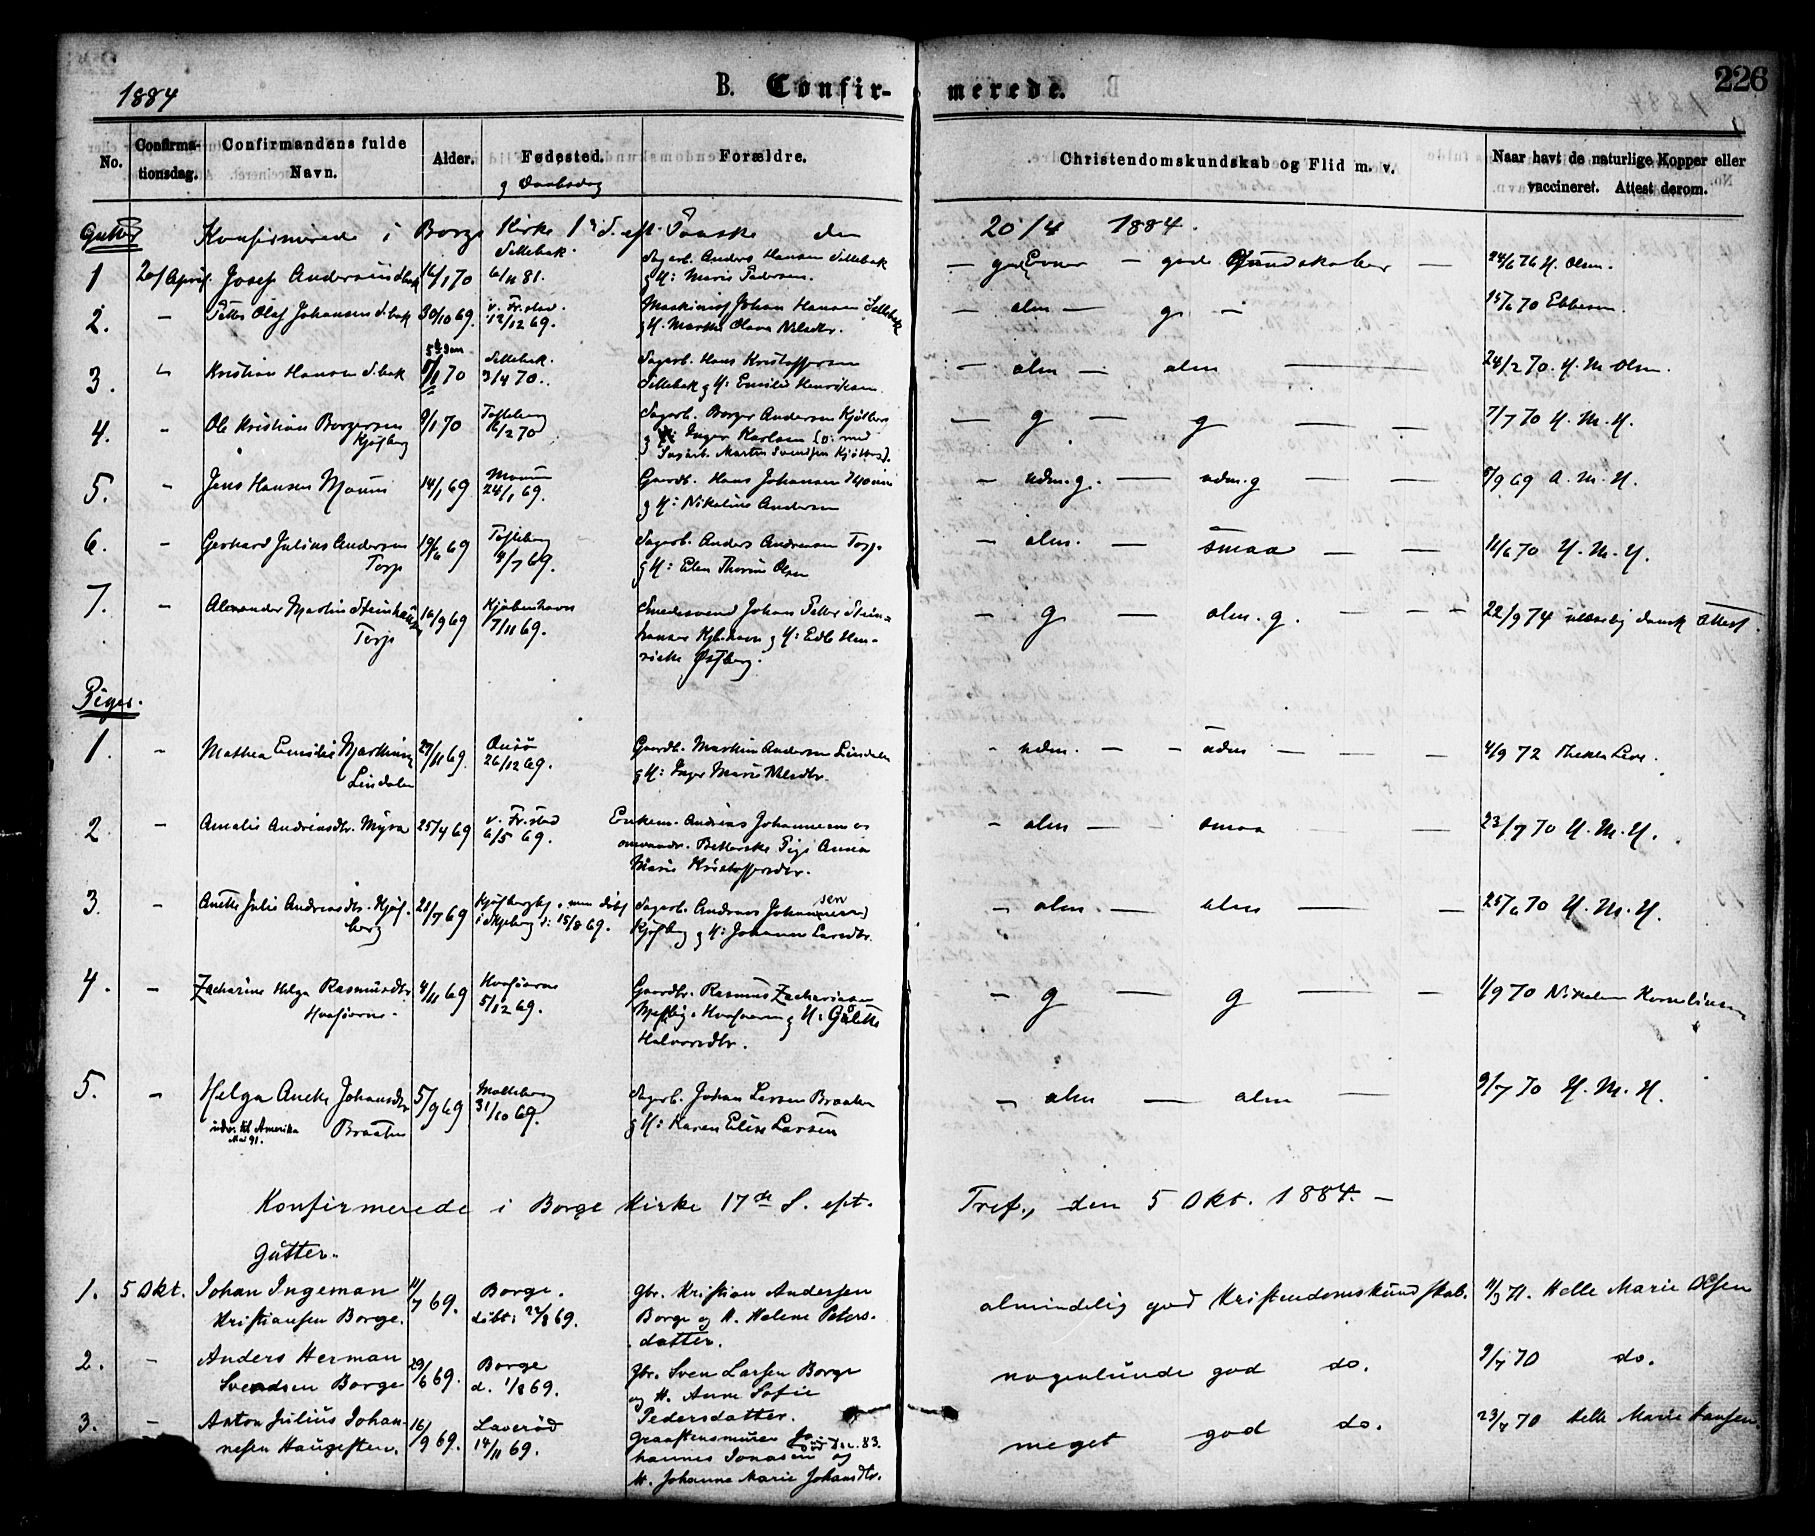 1884 B. Confirmerede. 226
No. Confirmationsdag. Confirmandens fulde Navn. Alder. Fødested. Forældre. Christendomskundskab og Flid m. v. Naar havt de naturlige Kopper eller vaccineret. Attest derom.
g Daabsdag
Gutter Konfirmerede i Borge Kirke 1ste S. eft. Paaske den 20/4 1884.
1 20/April Josef Andersen 16/1 70 Sellebak 6/11 81. Sagarb. Anders Hansen Sellebak
g H: Marie Pedersen. – gode Evner – gode Kundskaber – 24/6 76 H. Olsen.
2. – Petter Olaf Johansen S.bak 30/10 69. v. Fr.stad. 12/12 69. Maskinist Johan Hansen Sellebak
g H. Marthe Olava Nilsdtr. – alm – g. – 15/6 70 Ebbesen
3. – Kristian Hansen S.bak 70 Sellebak. 3/4 70. Sagarb. Hans Kristoffersen
Sellebak g H: Emilie Henriksen. – alm – alm – 24/2 70. H. M. Olsen.
4. – Ole Kristian Borgersen
Kjøfberg 9/1 70 Tofteberg 6/2 70 Sagarb. Borger Andersen
g Inger Karlsen
Sagarb. Martin Svendsen – g – g – 7/7 70 H. M. H.
5. – Jens Hansen Moum 14/1 69 Moum 24/1 69. Gaardb. Hans Johansen Moum
g H: Nikoline Andersen – udm. g. – udm. g – 5/9 69 A. M. H.
6. – Gerhard Julius Andersen
Torp 19/6 69 Tofteberg 9/7 69. Sagarb. Anders Andreasen Torp
g H: Elen Thorine Olsen – alm. – smaa – 11/6 70 H. M. H.
7. – Alexander Martin Steinhauser
Torp 16/9 69 Kjøbenhavn 7/11 69. Smedesvend Johan Petter Steinhauser
Kjbenhavn g H: Edle Henriette
Østberg. – g – alm. g. – 22/9 74 ulæselig dansk Attest.
Piger.
1. – Mathea Emilie Marthins
Lindalen 27/11 69. Onsø 26/12 69. Gaardb. Marthin Andersen Lindalen
g H: Inger Marie Nilsdtr. – udm. – udm – 4/9 72 Thekla Lexe.
2 – Amalie Andreasdtr. Myra 25/4 69 v. Fr.stad 6/5 69. Enkem. Andreas Johannesen
omvandr. Betlerske Pige Anna
Marie Kristoffersdtr. – alm – smaa – 23/7 70 H. M. H.
3. – Anette Julie Andreasdtr. Kjøfberg
21/7 69 men døbt
i Skjeberg d: 15/8 69. Sagarb. Andreas Johannessen
Kjøfberg g H: Johanne Larsdtr. – alm. – alm – 25/6 70 H. M. H.
4. – Zacharine Helga Rasmusdtr.
Hvaløerne. 4/11 69 Hvaløerne 5/12 69. Gaardbr. Rasmus Zachariasen
Hvaløerne g H: Gulette
Halvorsdtr. – g – g – 1/9 70 Nikoline Korneliusen
5. – Helga Anette Johansdtr
Braaten 5/9 69 Molteberg 31/10 69. Sagarb. Johan Larsen Braaten
g H: Karen Elise Larsen – alm – alm – 9/7 70 H. M. H.
udv. til Amerika
Mai 91.
Konfirmerede i Borge Kirke 17de S. eft. Tref., den 5 Okt. 1884. –
Gutter.
1. 5 Okt. Johan Ingeman
Kristiansen Borge. 11/7 69. Borge.
døbt: 22/8 69. Gbr. Kristian Andersen
Borge og H. Helene Petersdatter.
almindelig god Kristendomskundskab. 11/9 71. Helle Marie Olsen
2. – Anders Herman
Svendsen Borge 29/6 69. Borge
d. 1/8 69. Gbr. Sven Larsen Borge
og H. Anne Sofie
Pedersdatter. nogenlunde god do. 9/7 70 do.
3. – Anton Julius Johannesen
Haugesten. 16/9 69. Laverød
14/11 69. Graastensmurer Johannes Jonasen død Dec. 83. og
H. Johanne Marie Johansdtr. meget god do. 23/7 70 Helle Marie Hansen